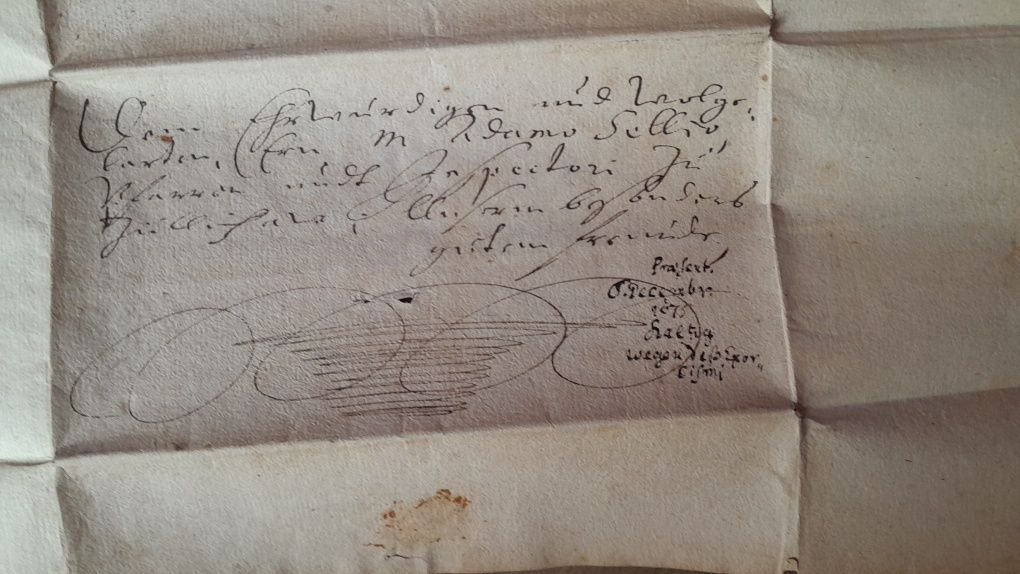 Dem Ehrwürdigen und Wolge-
larten, Ern M Adamo Sellio
Pfarren undt Inspectori zu
Züllichaw, Unserm besonders
gutem freunde
Præsent.
8. Decembr.
Saltzg
wegen deß Exor-
cismi